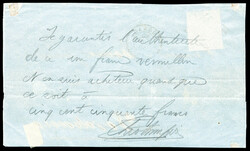 Je garantis l'authenticité
de ce un franc vermillon
M'en suis acheteur quand que
ce soit à
cinq cent cinquante francs